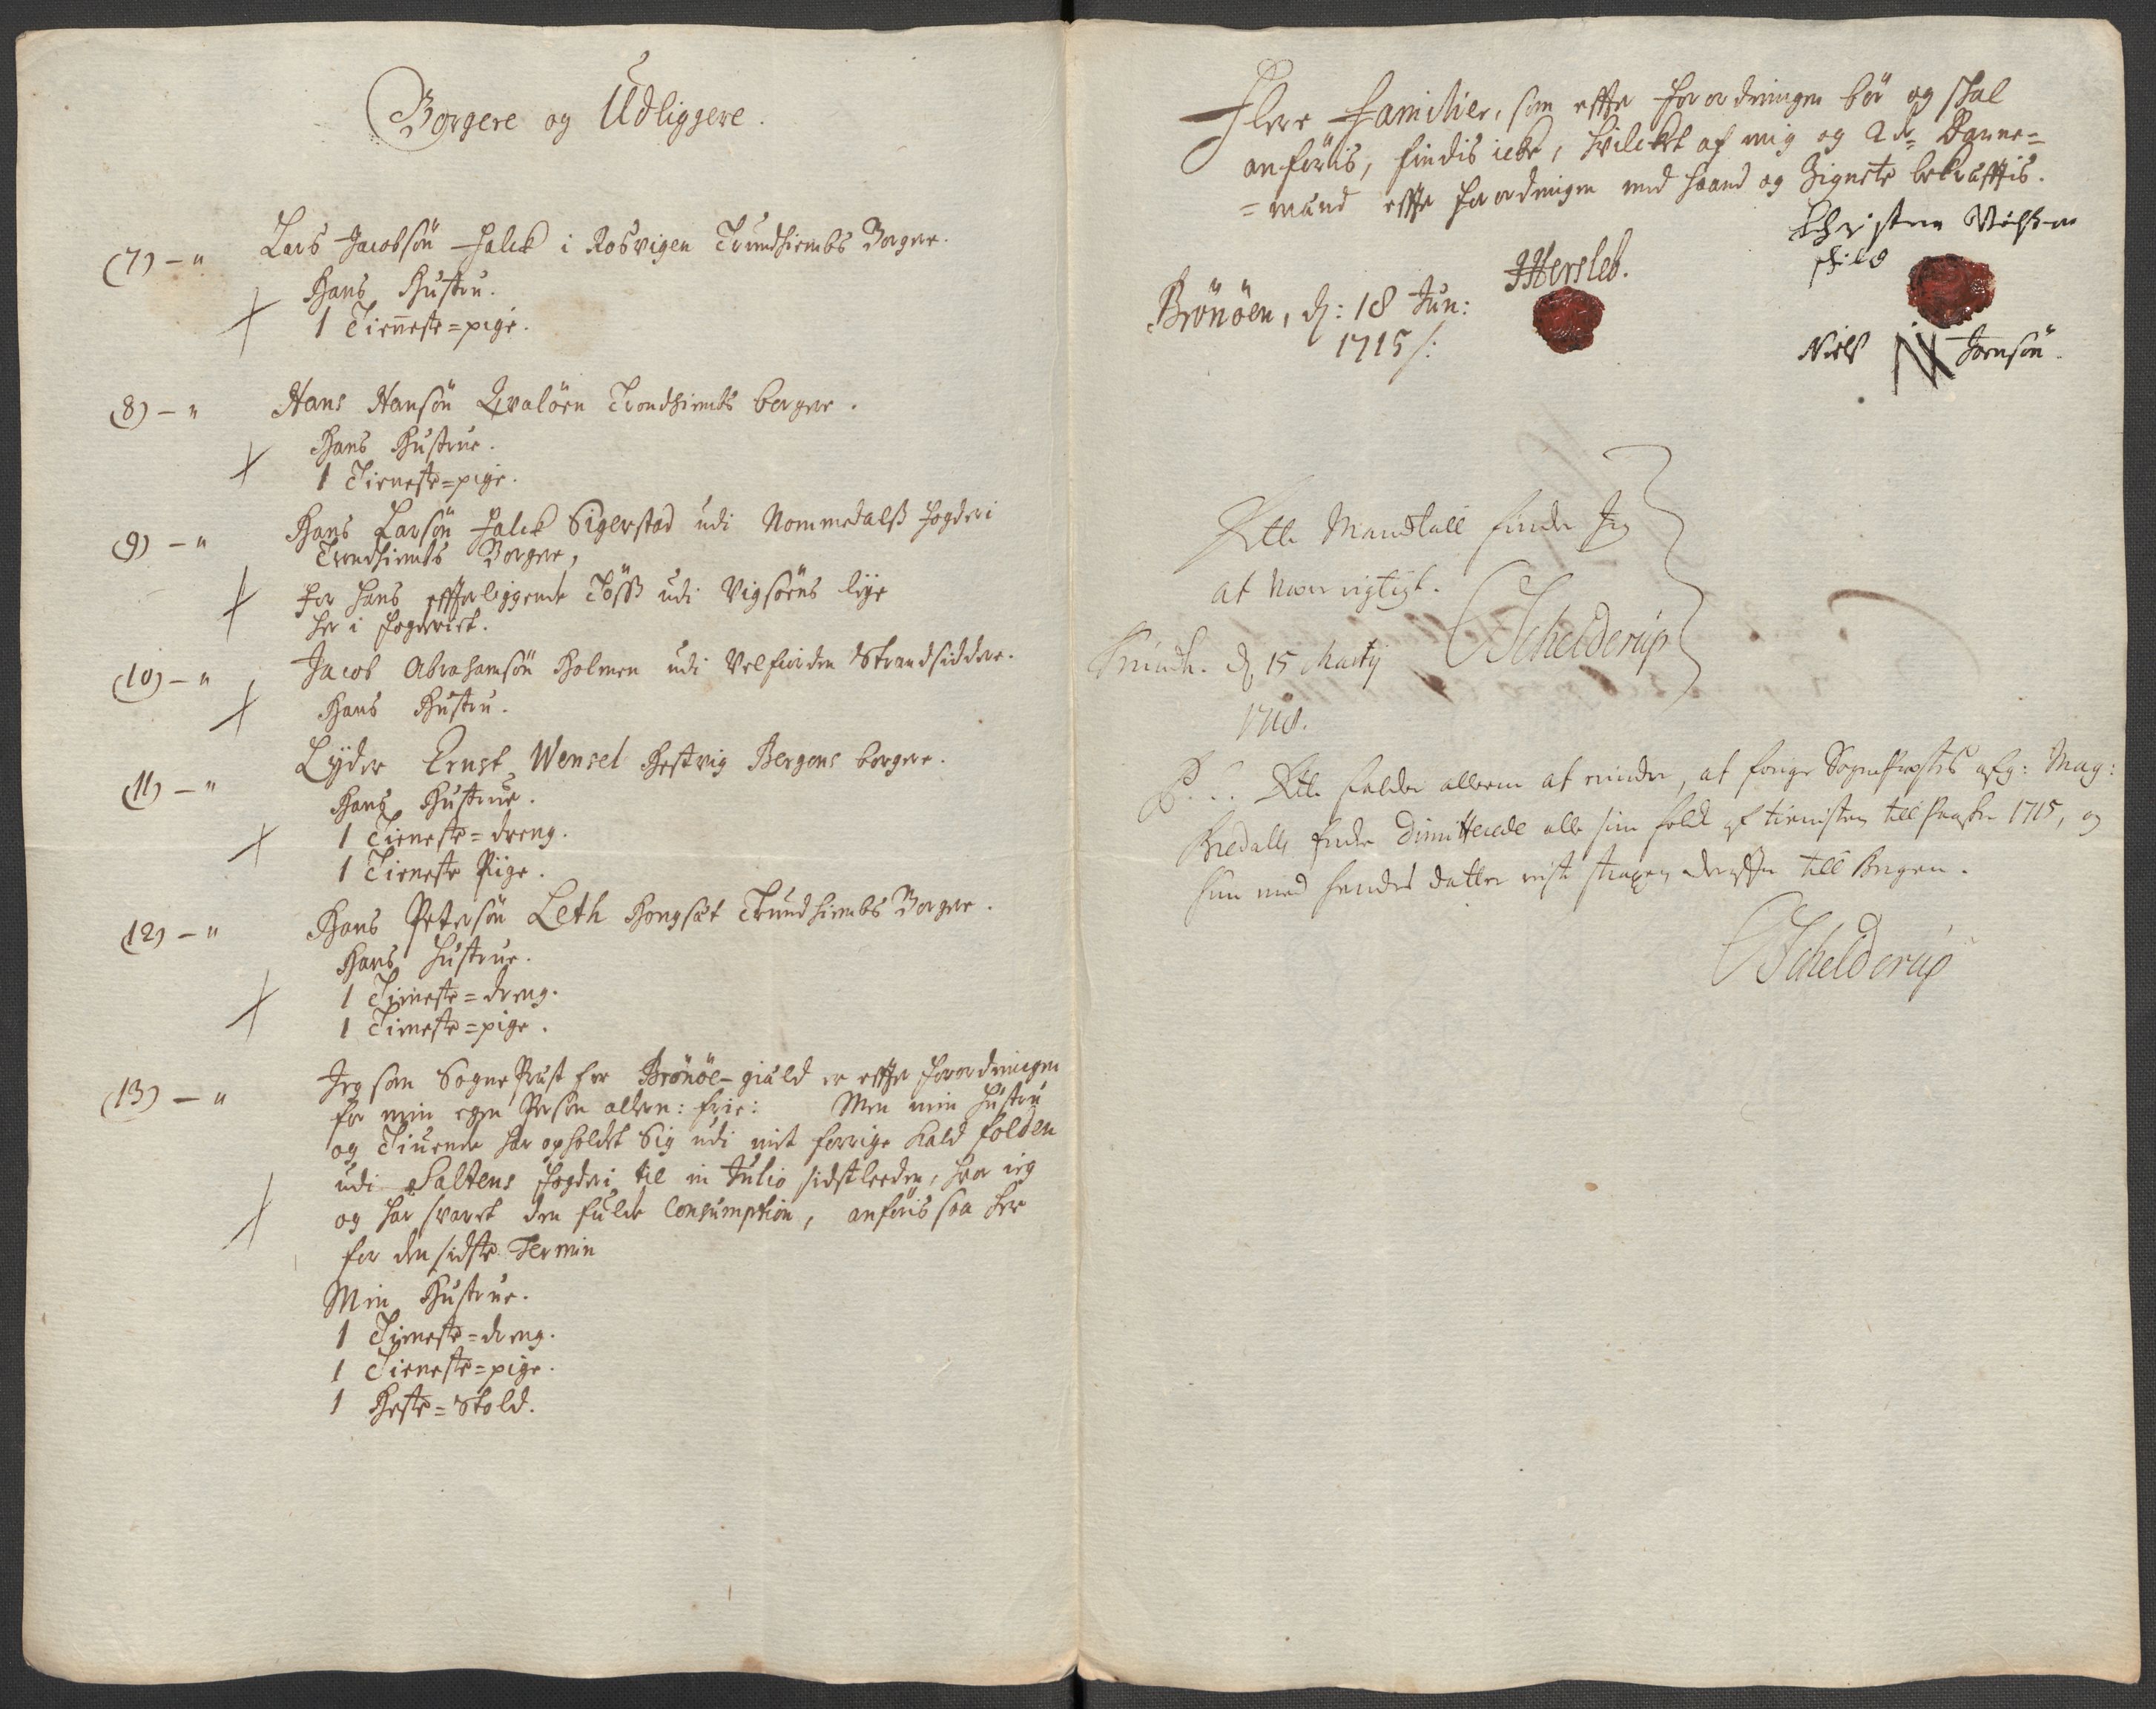 Borgere og Udliggere.
(7) – " Lars Jacobsön Falck i Rosvigen Trundhiembs Borger.
Hans Hustru.
1 Tienneste=pige.
(8) – " Hans Hansön Qvalöen Trondhiembs borger.
Hans Hustrue.
1 Tieneste=pige.
(9) – " Hans Larsön Falck Sigerstad udi Nommedalß fogderi
Trundhiembs Borger,
for hans efterliggende udi Vigsöens
her i fogderiet.
(10) – " Jacob Abrahamsön Holmen udi Velfiorden Strandsidder.
Hans Hustru.
(11) – " Lyder Ernst Wensel Hestvig Bergens borger.
Hans Hustrue.
1 Tieneste=dreng.
1 Tieneste Piige.
(12) – " Hans Petersön Leth Hongsæt Trundhiembs Borger.
Hans Hustrue.
1 Tieneste=dreng.
1 Tieneste=pige.
(13) – " Jeg som Sogne Præst for Brönöe-giæld er effter forordningen
for min egen Person allene: frie: Men min Hustru
og Tiuende har opholdet Sig udi mit forrige kald folden
udi Saltens fogderi til in Julio sidstleeden, hvor jeg
og har svaret den fulde Consumption, anföris saa her
for den sidste Termin
Min Hustrue.
1 Tieneste=dreng.
1 Tieneste=pige.
1 Heste=Skold.
Flere Familier, som effter forordningen bör og skal
anföris, findis icke, hvilcket af mig og 2de Danne=
=mænd effter forordningen med haand og Zignete bekræfftis.
Brönöen, d: 18 Jun:
1715/:
Hersleb.
Christen
Niels N Joensön.
Dette Mandtall finder Jeg
at være rigtigt.
d. 15 Martij
1718.
Schelderup
Dette falder allene at erindre, at forige Sogneprestes : Mag:
dimitterede alle sine folck af tienisten till Paaske 1715, og
hun med hendes datter reiste strax derefter till Bergen.
Schelderup